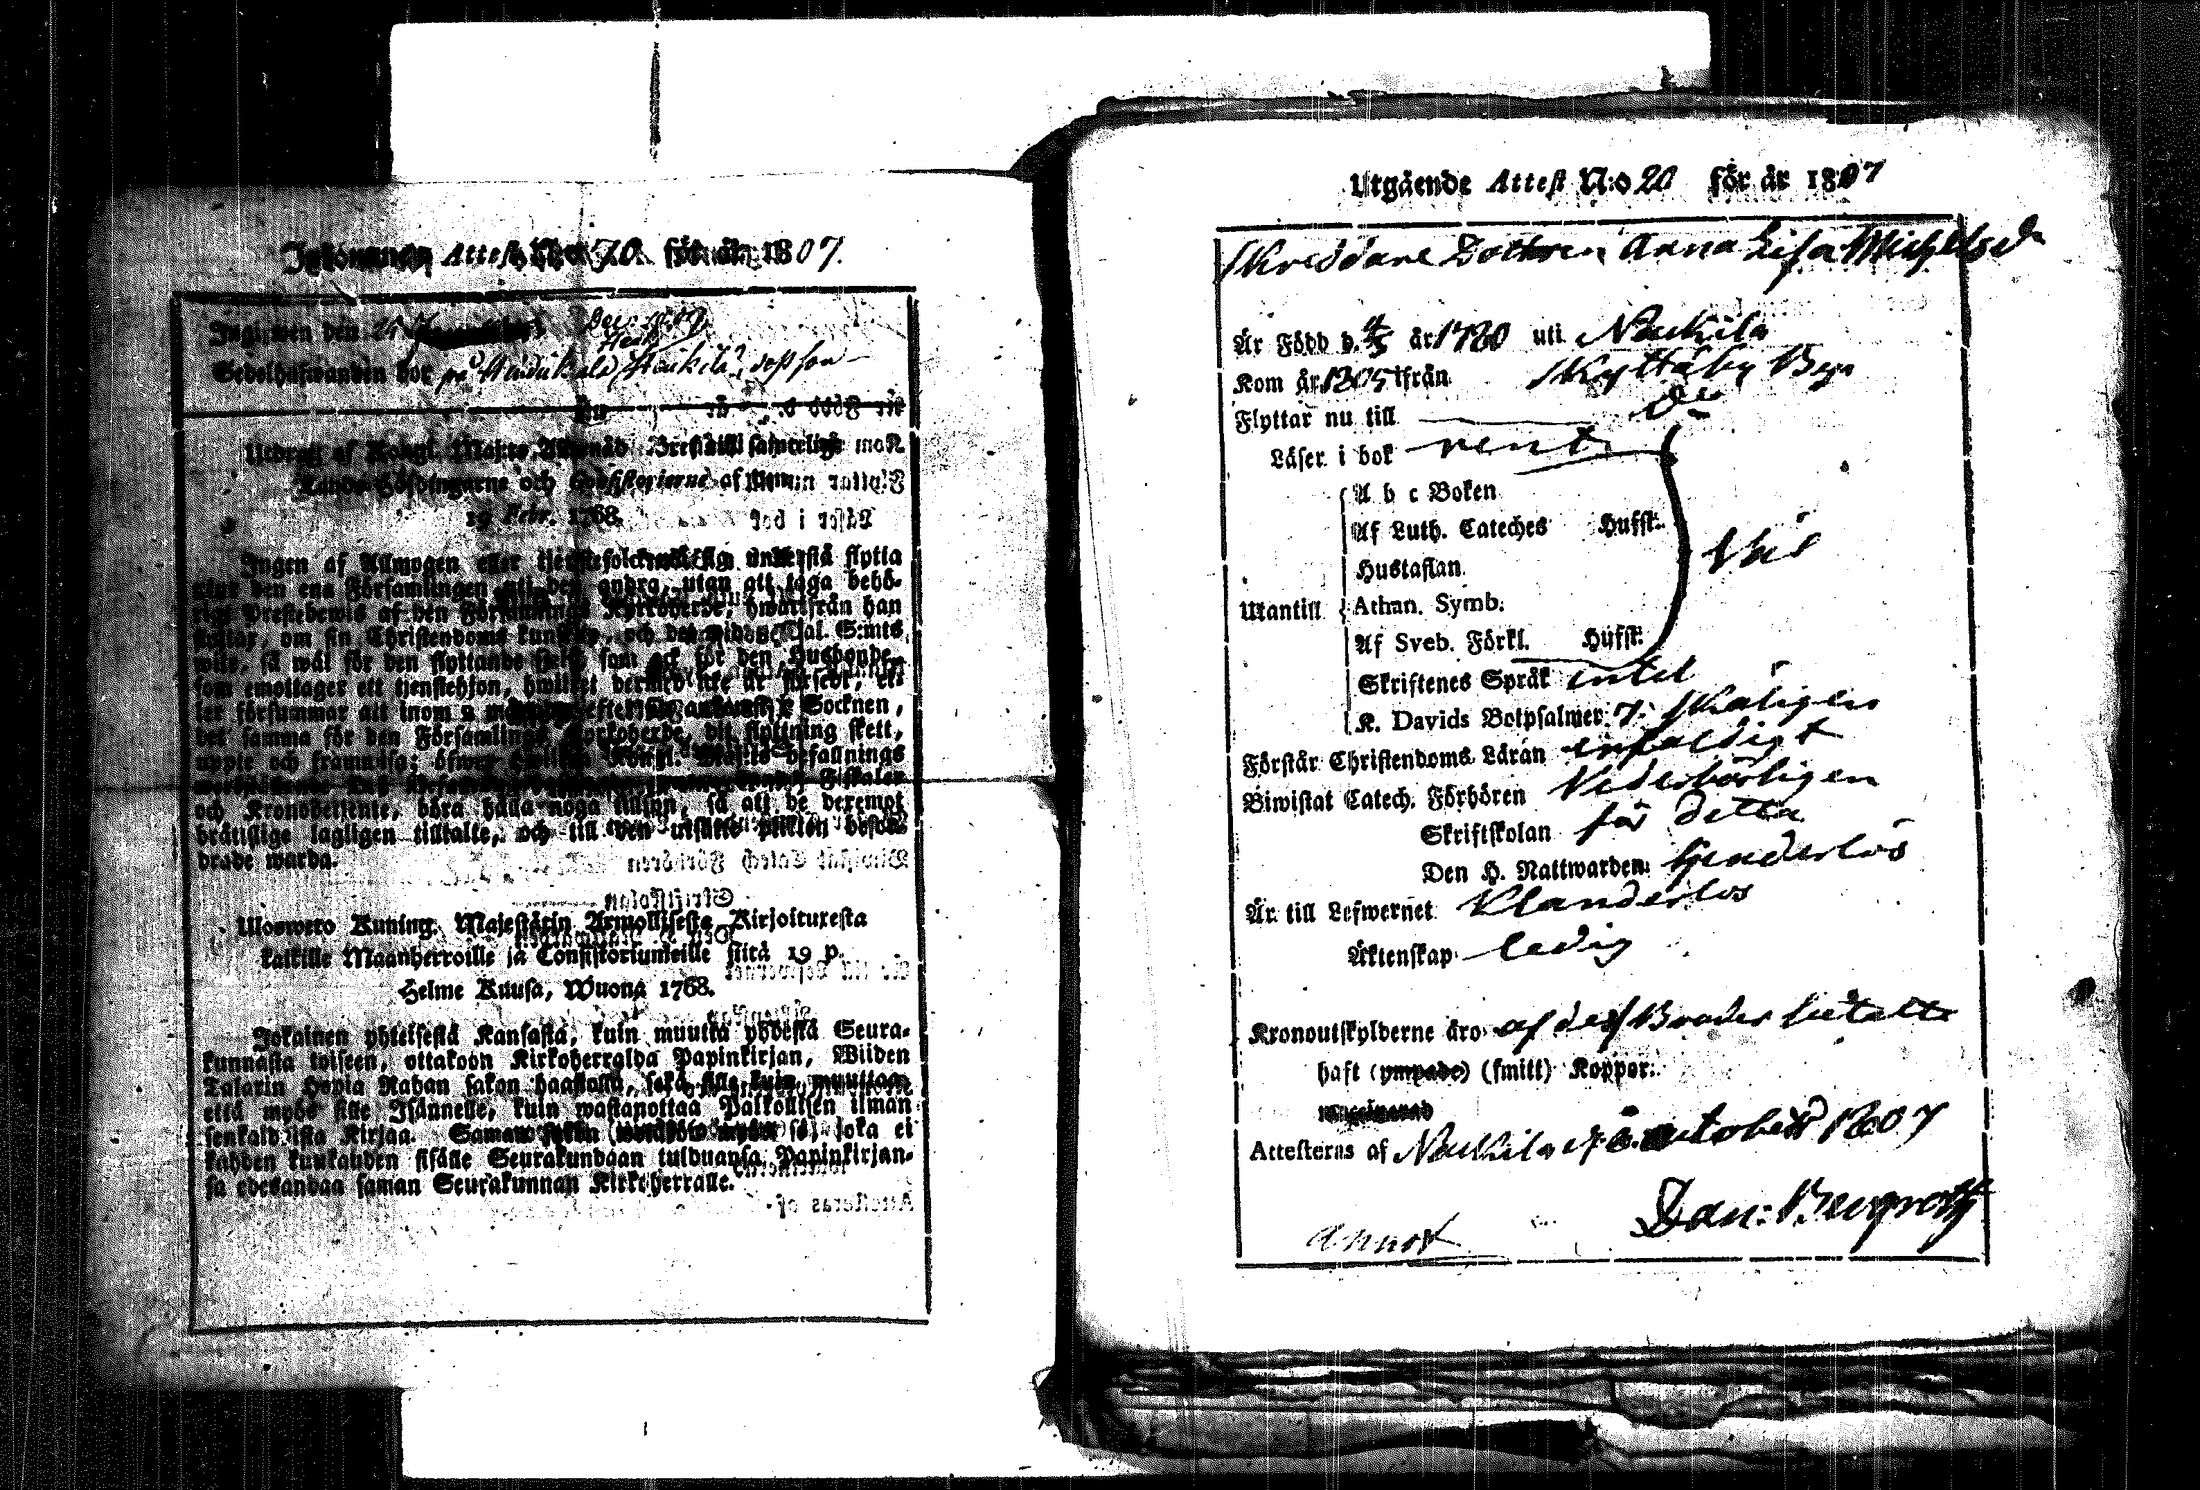 Inkommen Attest N:o 70. för år 1807.
Ingifwen den 24 Dec. 1807
Sedelhafwanden bor på
Utdrag af Kongl. Maj:ts Allernåd. Bref till samtelige
Lands-Höfdingarne och Consistorierne af den
19 Febr. 1768.
Ingen af Allmogen eller tjenstefolcket må sig understå flytta
ifrån den ena Församlingen uti den andra, utan att taga behö-
rigt Prestebewis af den Församlings Kyrkoherde, hwarifrån han
flyttar, om sin Christendoms kunskap, och det wid 5 Dal. S:mts
wite, så wäl för den flyttande sjelf, som ock för den Husbonde,
som emottager ett tjenstehjon, hwilket dermed icke är försedt, el-
ler försummar att inom 2 månader efter sin ankomst i Socknen,
det samma för den Församlings Kyrkoherde, dit flyttning skett,
uppte och framwisa; öfwer hwilken Kongl. Maj:ts befallnings
Fiskaler
och Kronobetjente, böra hålla noga tillsyn, så att de deremot
brätslige lagligen tilltalte, och till den utsatte plikten befor-
drade warda.
Uloswero Kuning. Majestätin Armollisesta Kirjoituxesta
kaikille Maanherroille ja Consistoriumeille siitä 19 p.
Helme Kuusa, Wuona 1768.
Jokainen yhteisestä Kansasta, kuin muutta yhdestä Seura-
kunnasta toiseen, ottakoon Kirkoherralda Papinkirjan, Wiiden
Talarin Hopia Rahan sakon haastolla, sekä sille kuin muuttaa,
että myös sille Isännelle, kuin wastanottaa Palkollisen ilman
senkaldaista Kirjaa. Saman sakon se, joka ei
kahden kuukauden sisälle Seurakundaan tulduansa Papinkirjan-
sa edesandaa saman Seurakunnan Kirkoherralle.
Utgående Attest N:o 20 för år 1807
Skreddare Dottren Anna Lisa Michelsd:r
Är Född d. 4/5 år 1780 uti Naukila
Kom år 1805 ifrån Skyttäby Byn
Flyttar nu till Do
Läser i bok rent
A b c Boken
Af Luth. Cateches Hufst.
Hustaflan
Utantill Athan. Symb.
Af Sveb. Förkl. Hufst.
Wäl
Skriftenes Språk intet
K. Davids Botpsalmer 7. skäligen
Förstår Christendoms Läran enfaldigt
Biwistat Catech. Förhören Vederbörligen
Skriftskolan för detta
Den H. Nattwarden
Är till Lefwernet Klanderlös
Äktenskap ledig
Kronoutskylderne äro af dess Broder betalte
haft (ympade) (smitt) Koppor.
waccinerad
Attesteras af Naukila d. 6 october 1807
Dan: Bergroth
annot